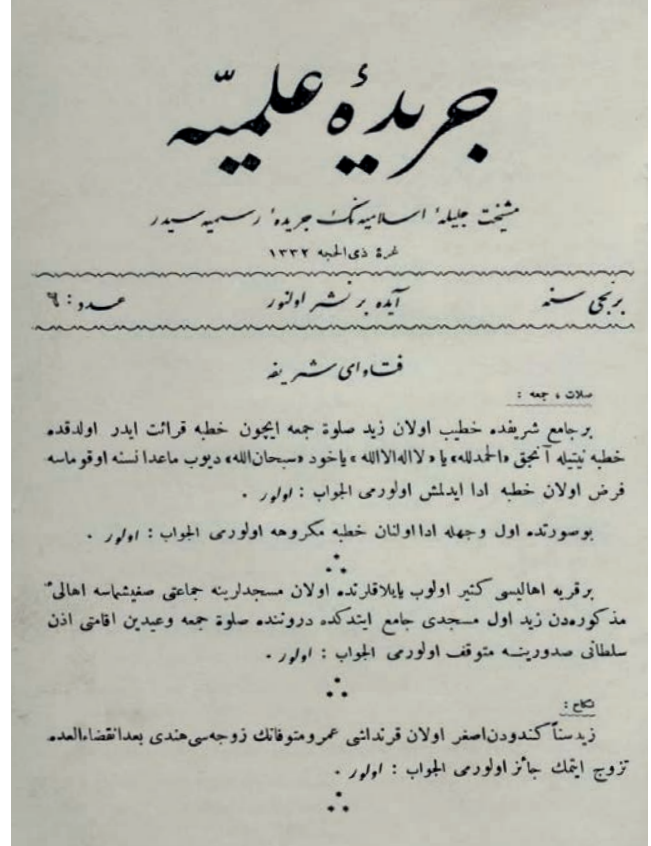 جريدۀ علميّه
مشيخت جليلۀ اسلاميه نڭ جريدۀ رسميه سيدر
غرۀ ذى الحجه ١٣٣٢
برنجى سنه
آيده بر نشر اولنور
عدد : ٦
فتاواى شريفه
صلات ، جمعه :
برجامع شريفده خطيب اولان زيد صلوة جمعه ايچون خطبه قرائت ايدر اولدقده
خطبه نيتيله آنجق «الحمدلله» يا « لااله الاالله » ياخود «سبحان الله» ديوب ماعدا نسنه اوقوماسه
فرض اولان خطبه ادا ايدلمش اولورمى الجواب : اولور .
بوصورتده اول وجهله ادا اولنان خطبه مكروهه اولورمى الجواب : اولور .
برقريه اهاليسى كثير اولوب يايلاقلرنده اولان مسجدلرينه جماعتى صفيشماسه اهالئ
مذكوره دن زيد اول مسجدى جامع ايتدكده دروننده صلوة جمعه وعيدين اقامتى اذن
سلطانى صدورينه متوقف اولورمى الجواب : اولور .
نكاح :
زيد سناً كندودن اصغر اولان قرنداشى عمرو متوفانك زوجه سى هندى بعد انقضاء العده
تزوج ايتمك جائز اولورمى الجواب : اولور .